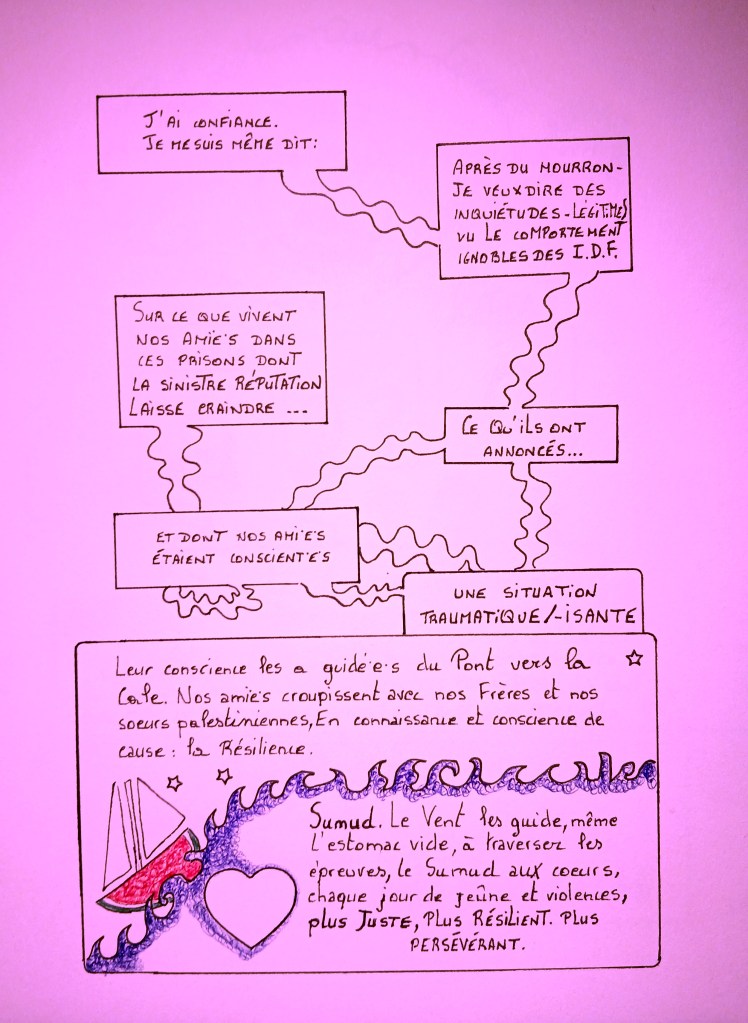 J'AI CONFIANCE.
JE ME SUIS MÊME DIT:
APRÈS DU MOURRON-
JE VEUX DIRE DES
INQUIÉTUDES-LÉGITIMES
VU LE COMPORTEMENT
IGNOBLES DES I.D.F.
SUR CE QUE VIVENT
NOS AMIE'S DANS
CES PRISONS DONT
LA SINISTRE RÉPUTATION
LAISSE CRAINDRE ...
CE QU'ILS ONT
ANNONCÉS...
ET DONT NOS AMI'E'S
ÉTAIENT CONSCIENT'E'S
UNE SITUATION
TRAUMATIQUE/-ISANTE
Leur conscience les a guidé·e·s du Pont vers la
Cale. Nos amie's croupissent avec nos Frères et nos
soeurs palestiniennes, En connaissance et conscience de
cause : la Résilience.
Sumud. Le Vent les guide, même
L'estomac vide, à traverser les
épreuves, le Sumud aux coeurs,
chaque jour de jeûne et violences,
plus JUSTE, PLUS RÉSILIENT. PLUS
PERSÉVÉRANT.